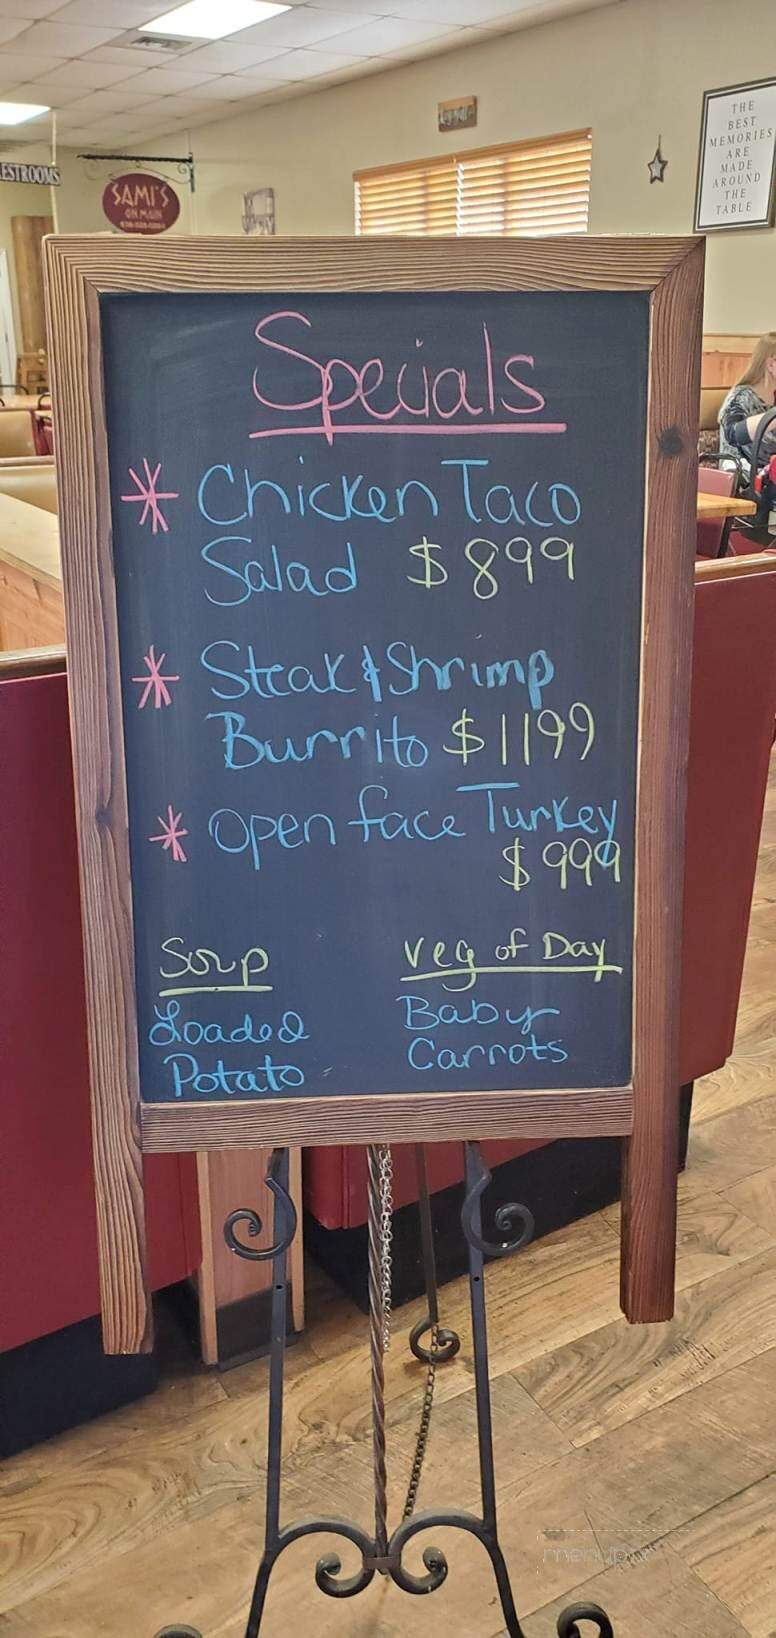 RESTROOMS
SAMI'S
ON MAIN
THE
BEST
MEMORIES
ARE
MADE
AROUND
THE
TABLE
Specials
* Chicken Taco
Salad $899
* Steak & Shrimp
Burrito $1199
* Open face Turkey
$999
Soup
Loaded
Potato
Veg of Day
Baby
Carrots
menupix